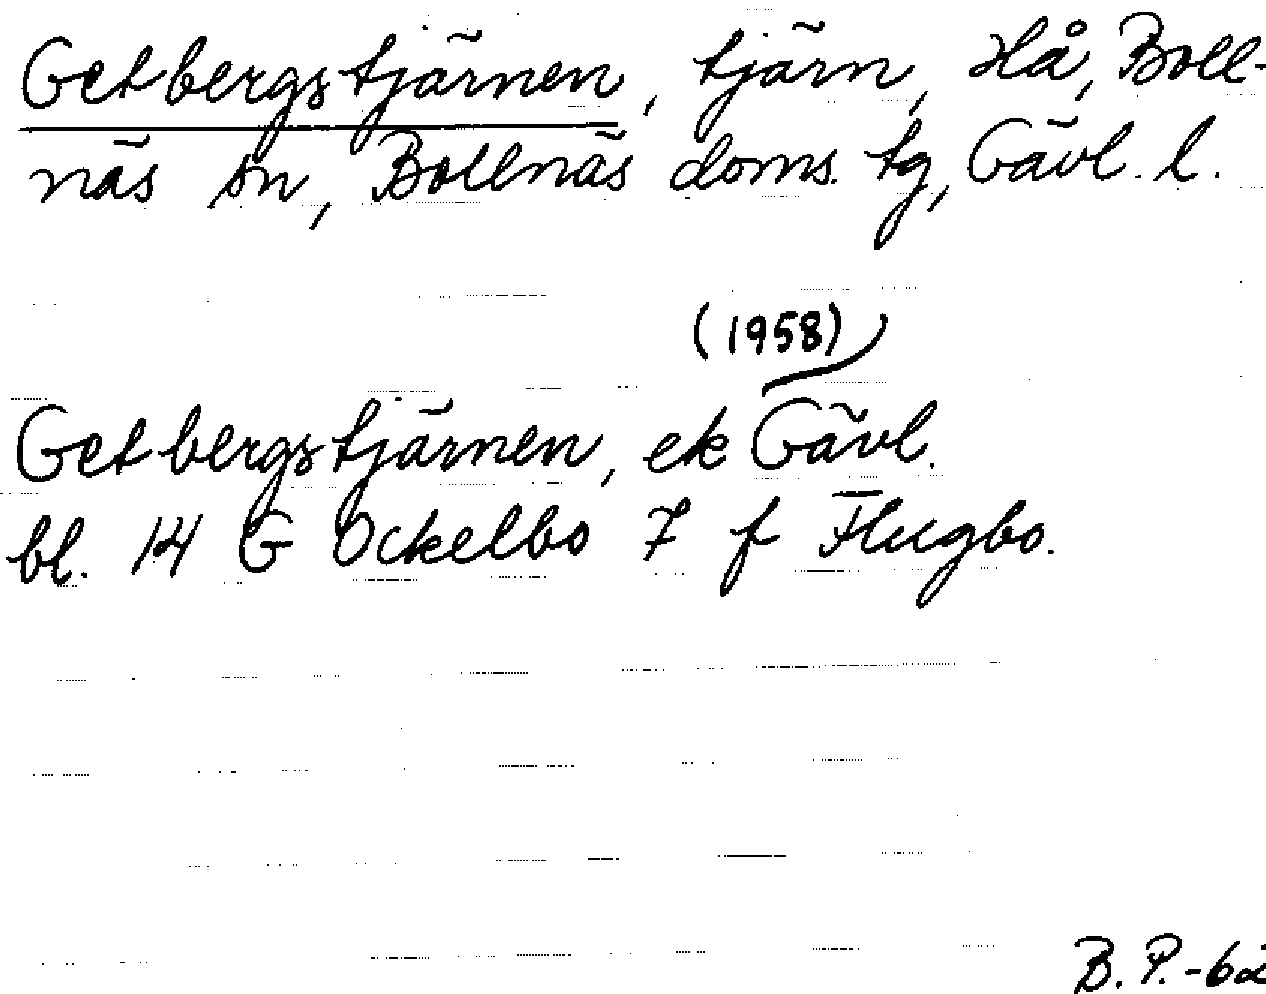 Getbergstjärnen, tjärn, Hå, Boll-
näs sn, Bollnäs doms. tg, Gävl. l.
(1958)
Getbergstjärnen, ek Gävl.
bl. 14 G Ockelbo 7 f Flugbo.
B.P.-62